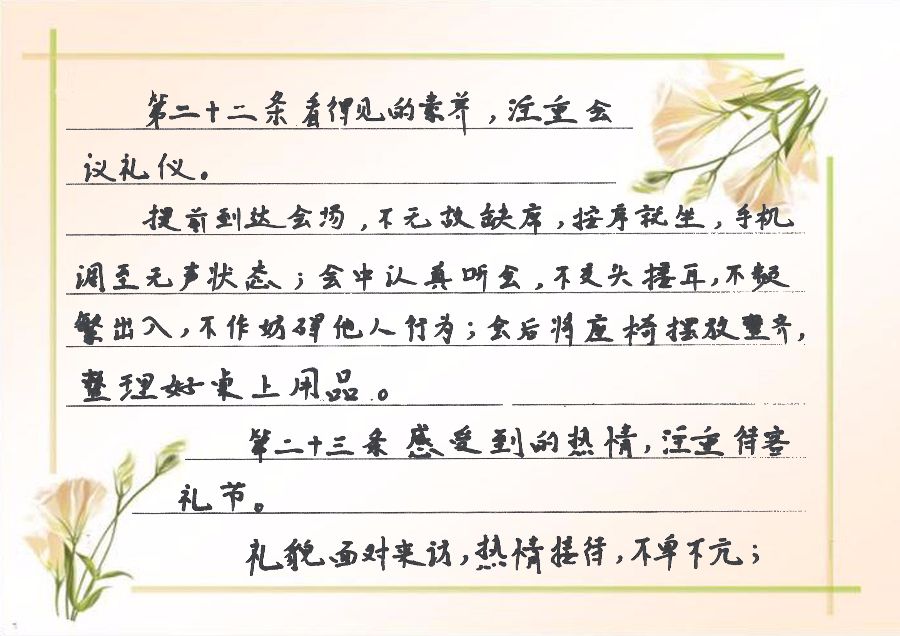 第二十二条 看得见的素养，注重会
议礼仪。
提前到达会场，不无故缺席，按序就坐，手机
调至无声状态；会中认真听会，不交头接耳，不频
繁出入，不作妨碍他人行为；会后将座椅摆放整齐，
整理好桌上用品。
第二十三条 感受到的热情，注重待客
礼节。
礼貌面对来访，热情接待，不卑不亢；